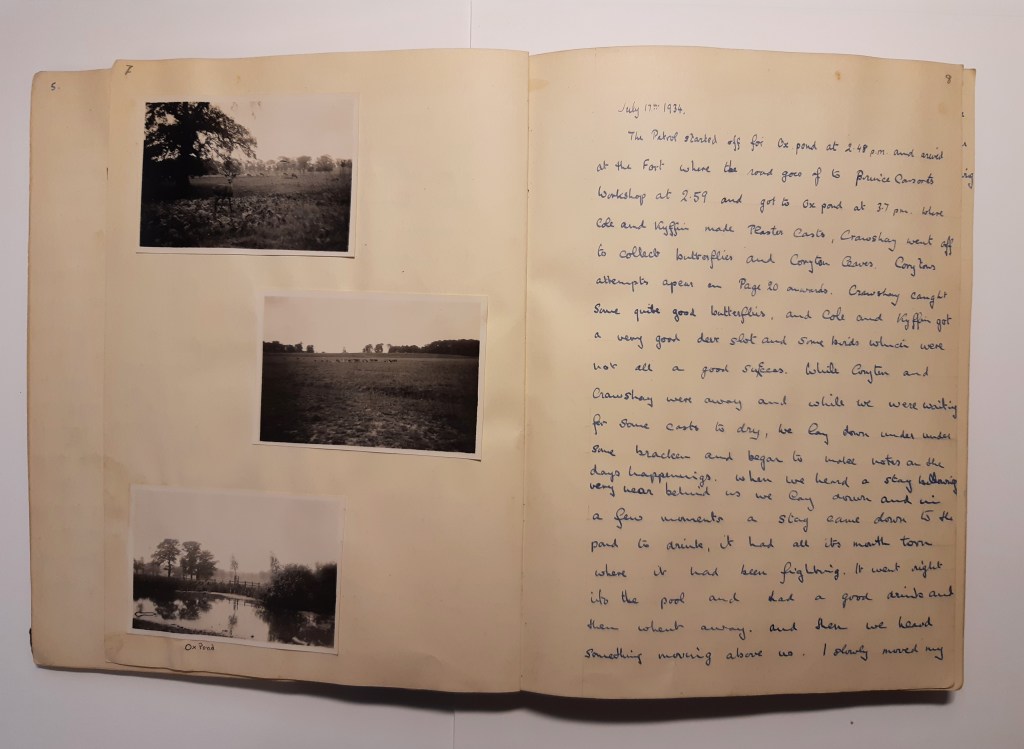 5.
7
Ox Pond
8
July 17TH 1934.
The Patrol started off for Ox pond at 2.48 p.m. and arived
at the Fort where the road goes of to Prince Consorts
Workshop at 2:59 and got to Ox pond at 3.7 p.m. Where
Cole and Kyffin made Plaster Casts, Crawshay went off
to collect butterflies and Coryton Leaves. Corytons
attempts apear on Page 20 onwards. Crawshay caught
some quite good butterflies, and Cole and Kyffin got
a very good deer slot and some birds which were
not all a good success. While Coryton and
Crawshay were away and while we were waiting
for some casts to dry, we lay down under under
some bracken and began to make notes on the
days happenings. When we heard a stag bellowing
very near behind us we lay down and in
a few moments a stag came down to the
pond to drink, it had all its mouth torn
where it had been fighting. It went right
into the pool and had a good drink and
then whent away. and then we heard
something moving above us. I slowly moved my